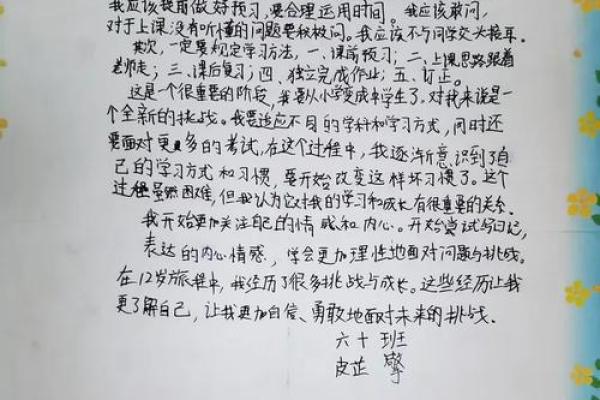 我应该提前做好预习,要合理运用时间。我应该敢问,
对于上课没有听懂的问题要积极问。我应该不与同学交头接耳。
其次,一定要规定学习方法,一、课前预习;二、上课思路跟着
老师走;三、课后复习;四、独立完成作业;五、订正。
这是一个很重要的阶段,我要从小学变成中学生了。对我来说是一
个全新的挑战。我要适应不同的学科和学习方式,同时还
要面对更多的考试,在这个过程中,我逐渐意识到了自
己的学习方式和习惯,要开始改变这样坏习惯了。这个
过程虽然困难,但我认为它对我的学习和成长有很重要的关系。
我开始更加关注自己的情感和内心。开始尝试写日记,
表达的内心情感,学会更加理性地面对问题与挑战。
在12岁旅程中,我经历了很多挑战与成长。这些经历让我
更了解自己,让我更加自信、勇敢地面对未来的挑战。
六十班
皮芷擎